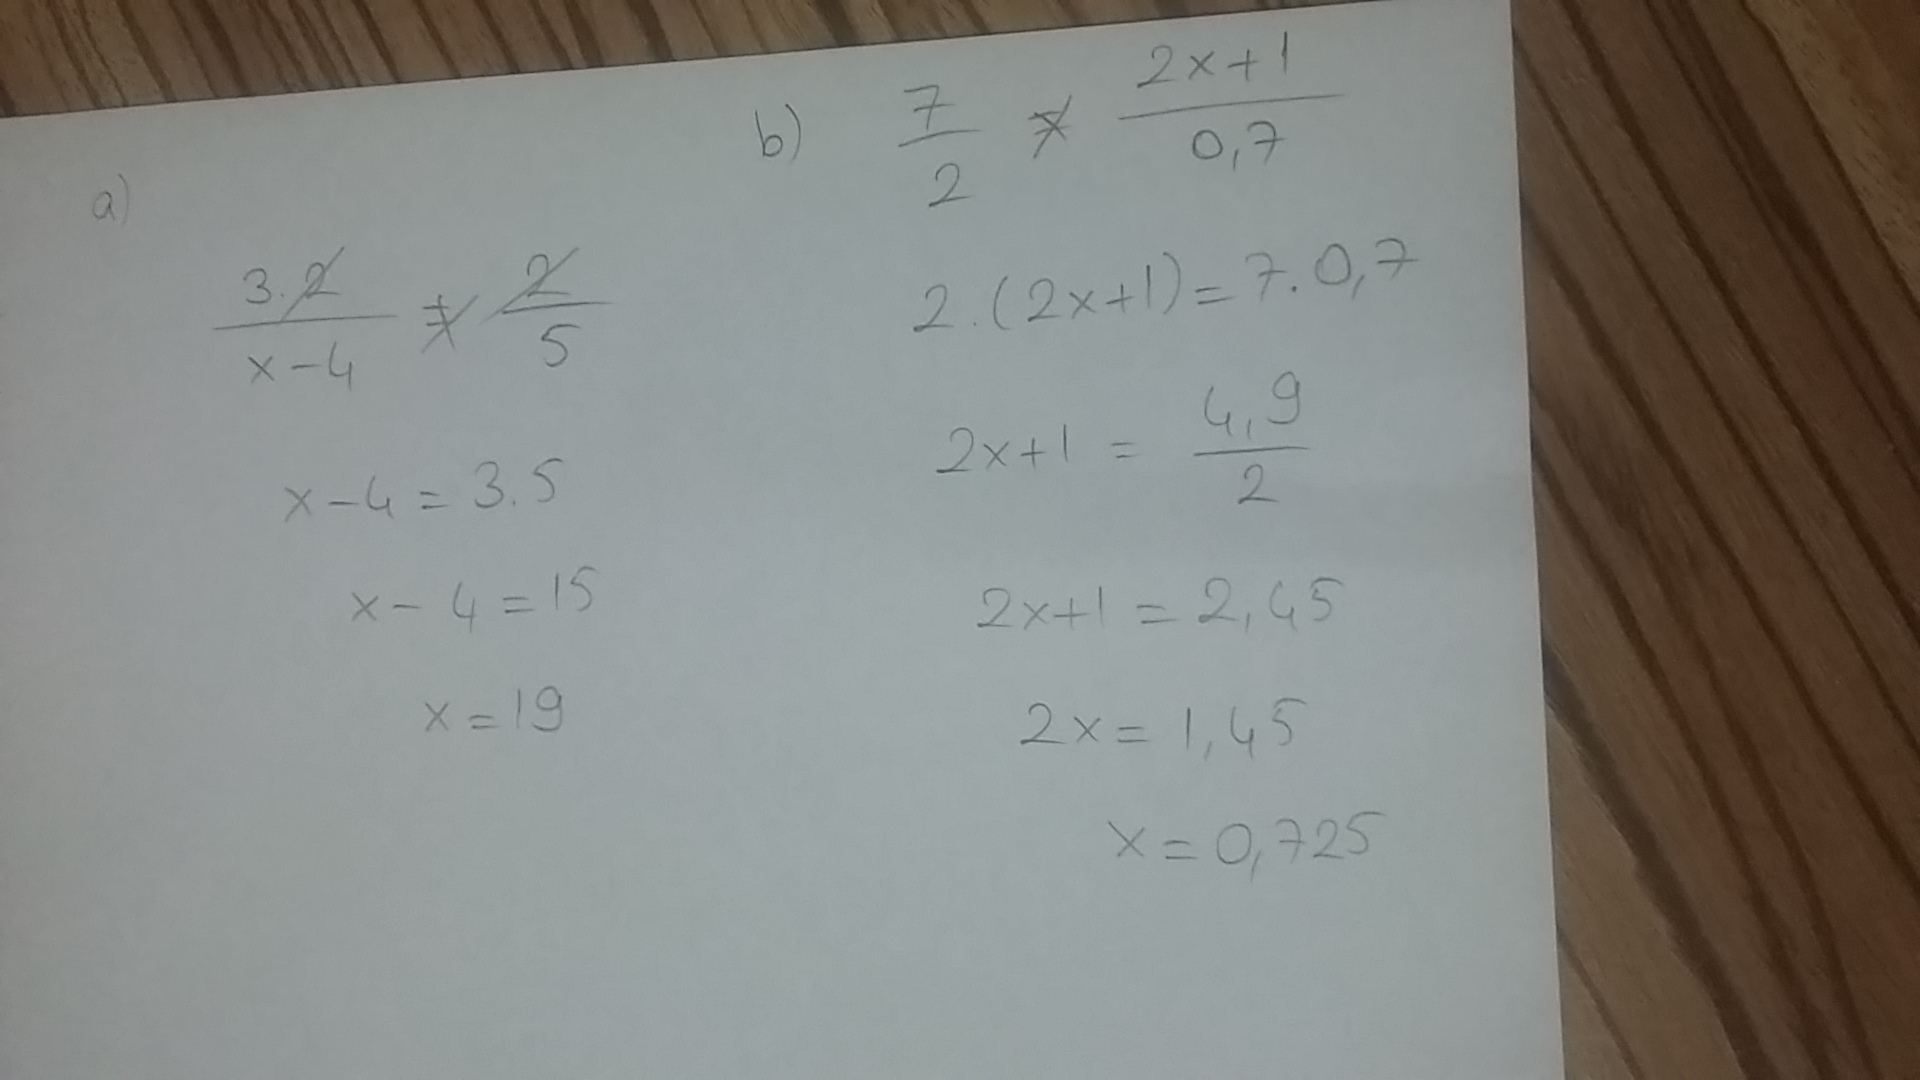 a)
3.2/(x-4) = 2/5
x-4 = 3.5
x-4 = 15
x = 19
b) 7/2 = (2x+1)/0,7
2.(2x+1) = 7.0,7
2x+1 = 4,9/2
2x+1 = 2,45
2x = 1,45
x = 0,725